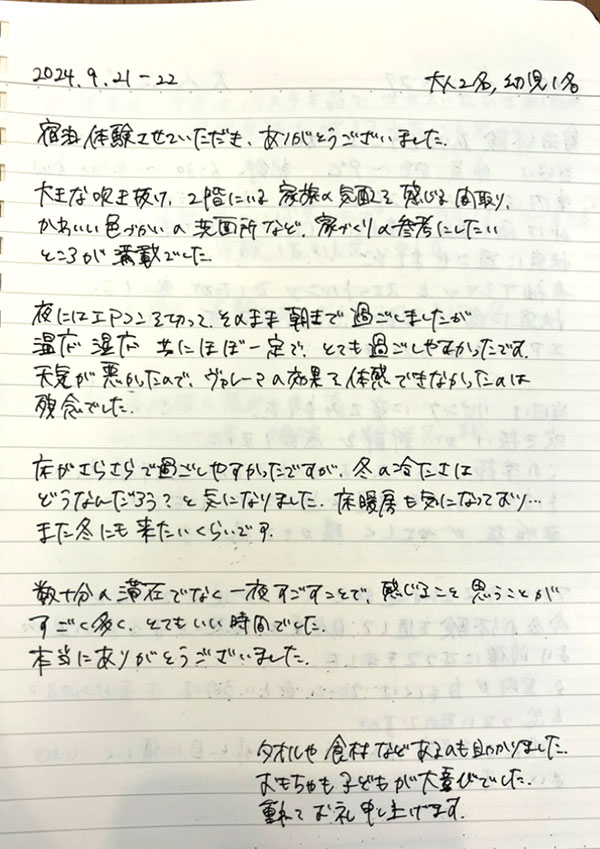 2024.9.21-22
大人2名,幼児1名
宿泊体験させていただき、ありがとうございました。
大きな吹き抜け、2階にいる家族の気配を感じる間取り、
かわいい色づかいの洗面所など、家づくりの参考にしたい
ところが満載でした。
夜にはエアコンを切って、そのまま朝まで過ごしましたが
温度 湿度 共にほぼ一定で、とても過ごしやすかったです。
天気が悪かったので、ヴァレーマの効果を体感できなかったのは
残念でした。
床がさらさらで過ごしやすかったですが、冬の冷たさは
どうなんだろう?と気になりました。床暖房も気になっており…
また冬にも来たいくらいです。
数十分の滞在でなく一夜すごすことで、感じること思うことが
すごく多く、とてもいい時間でした。
本当にありがとうございました。
タオルや食材などあるのも助かりました。
おもちゃも子どもが大喜びでした。
重ねてお礼申し上げます。